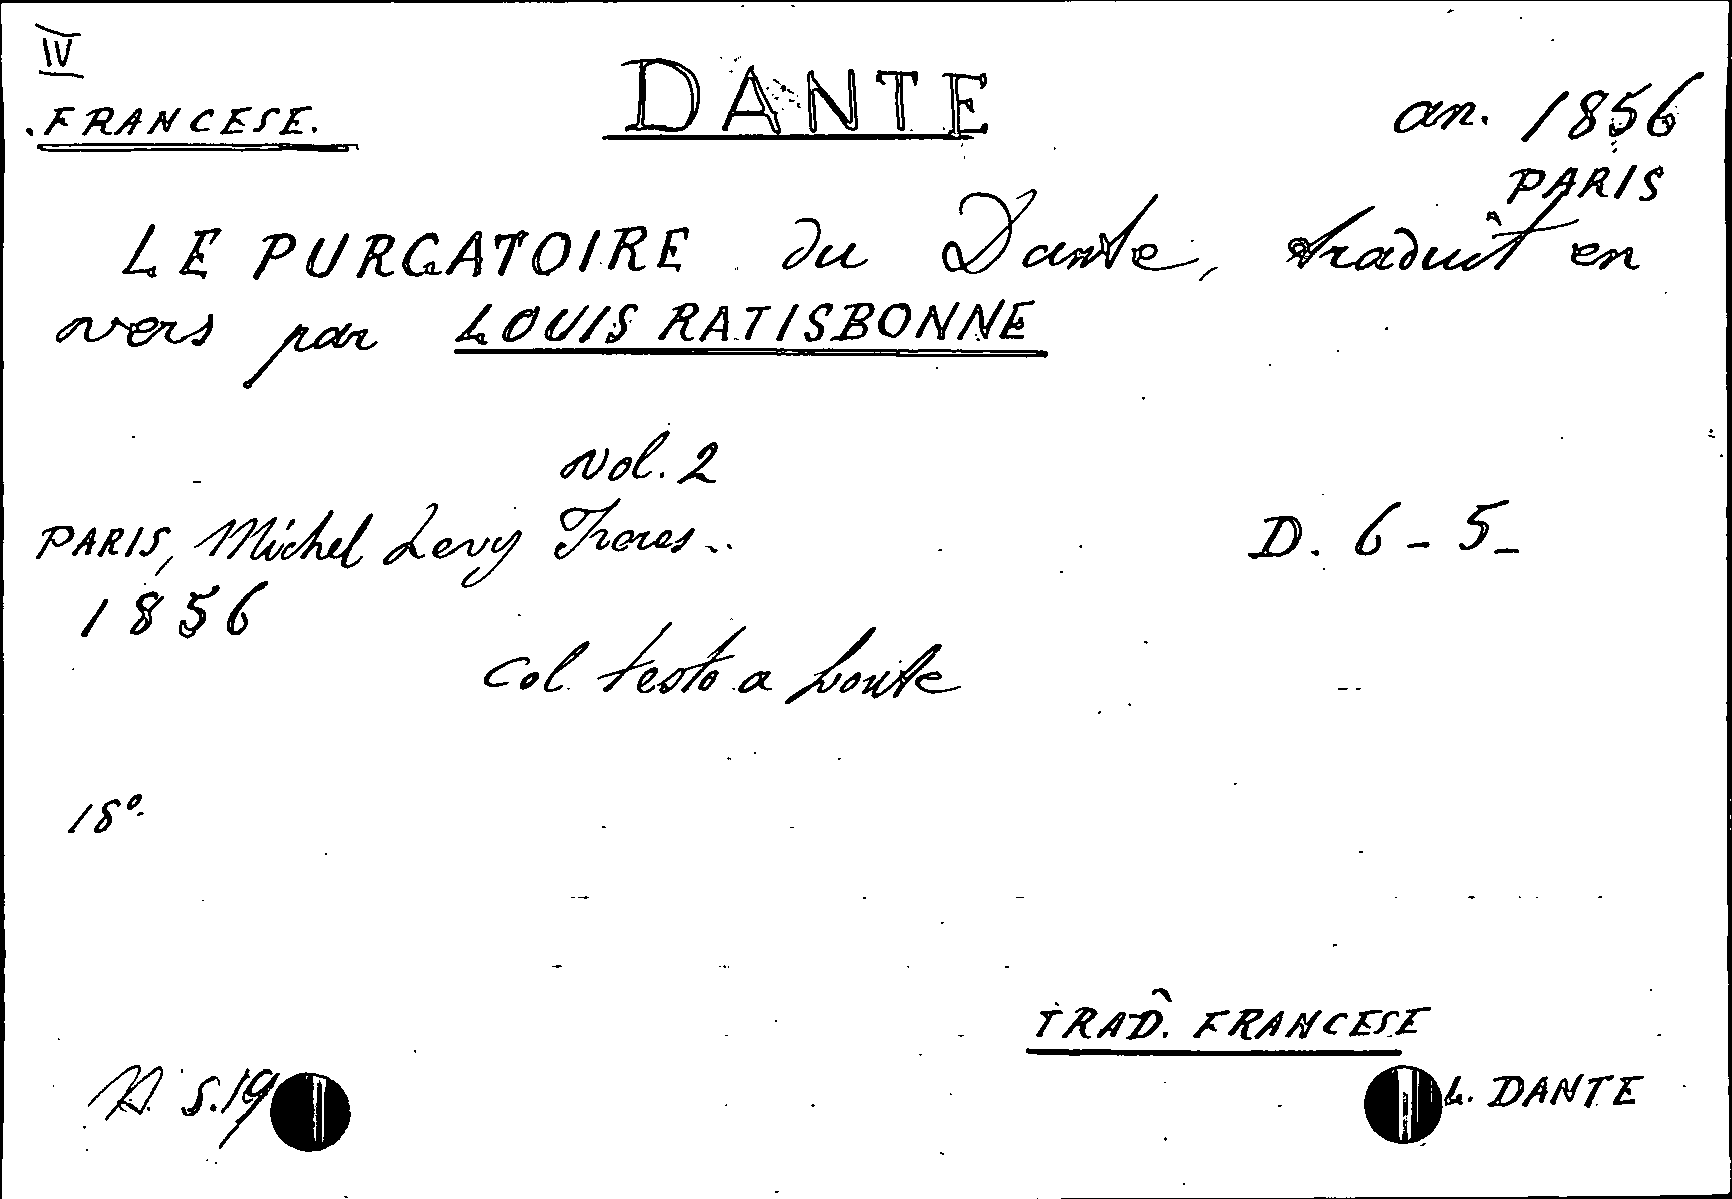 IV
FRANCESE.
DANTE
an. 1856
PARIS
LE PURGATOIRE du Dante, traduit en
vers par LOUIS RATISBONNE
vol. 2
PARIS, Michel Levy Freres..
D. 6-5-
1856
Col testo a fonte
18°.
TRAD. FRANCESE
S.19
L. DANTE